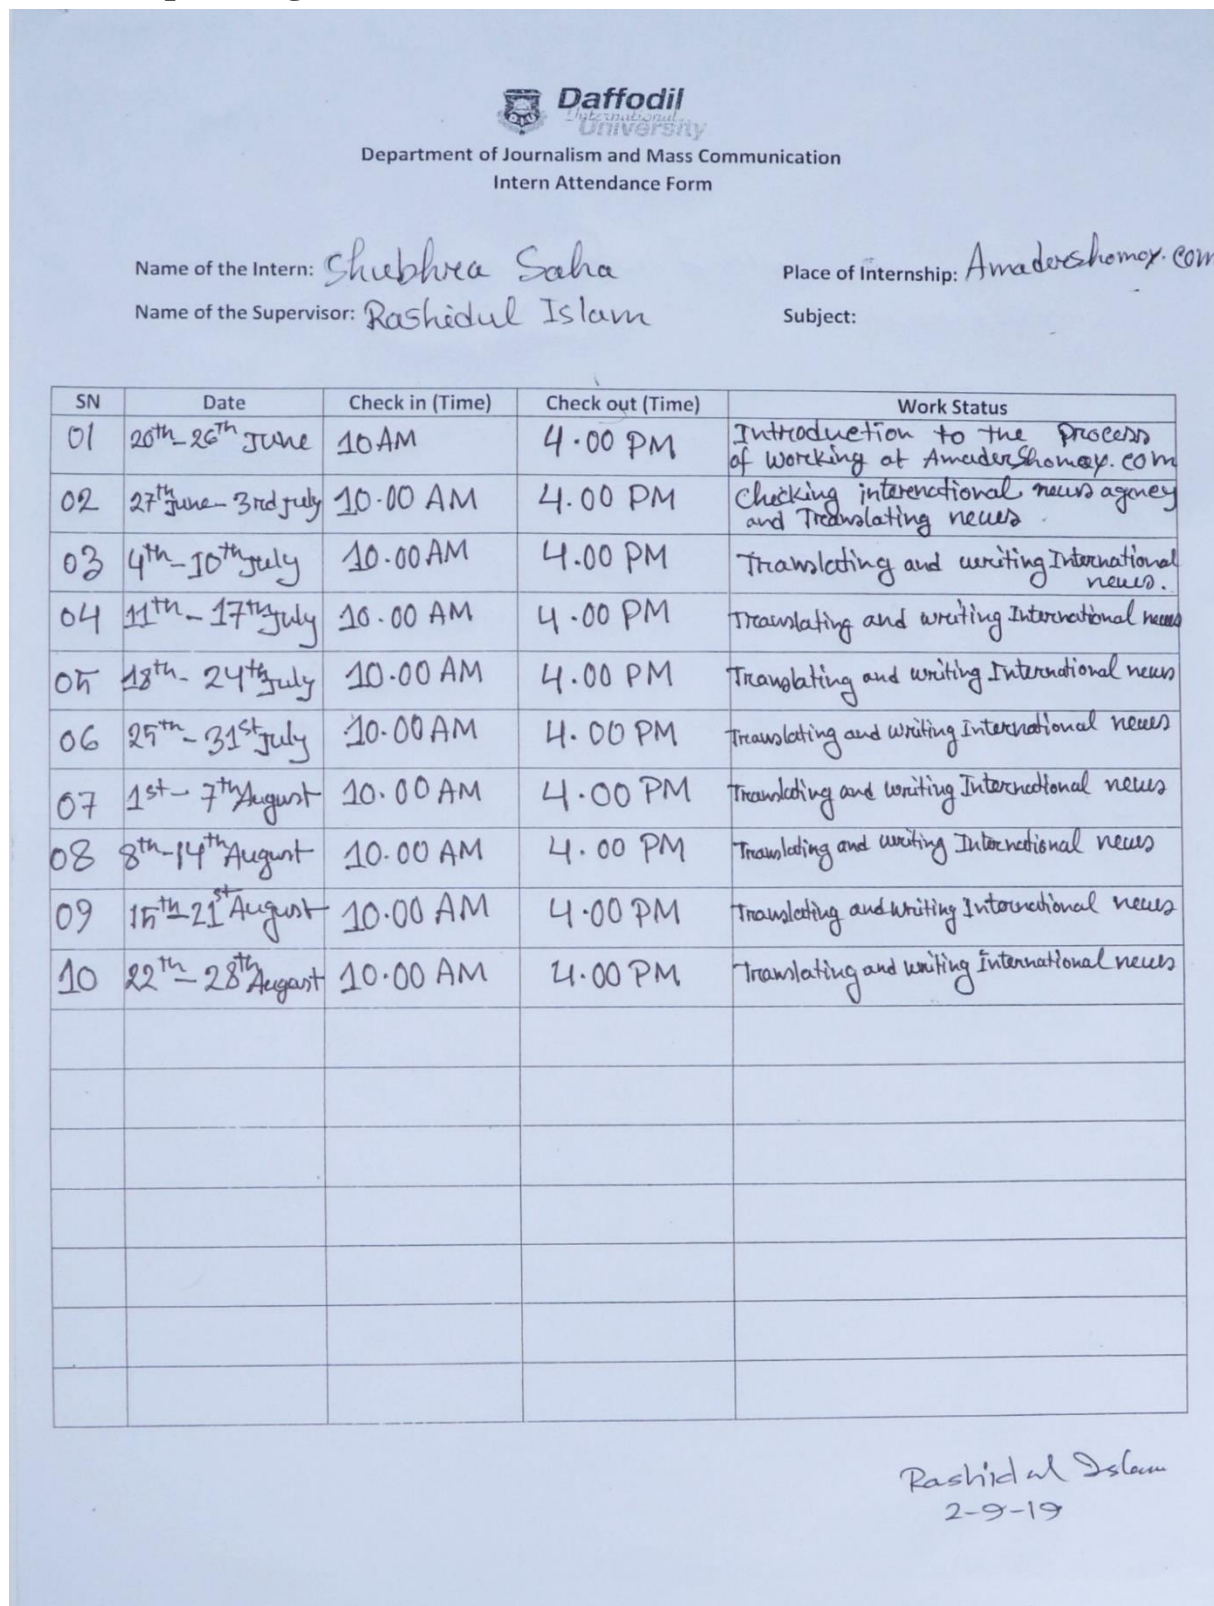 Daffodil
International
University
Department of Journalism and Mass Communication
Intern Attendance Form
Name of the Intern: Shubhra Saha
Place of Internship: Amadershomoy.com
Name of the Supervisor: Rashidul Islam
Subject:
SN Date Check in (Time) Check out (Time) Work Status
01 20th-26th June 10 AM 4.00 PM Introduction to the process
of Working at AmaderShomoy.com
02 27th June-3rd July 10.00 AM 4.00 PM Checking international news agency
and Translating news.
03 4th-10th July 10.00 AM 4.00 PM Translating and writing International
news.
04 11th-17th July 10.00 AM 4.00 PM Translating and writing International news
05 18th-24th July 10.00 AM 4.00 PM Translating and writing International news
06 25th-31st July 10.00 AM 4.00 PM Translating and Writing International news
07 1st-7th August 10.00 AM 4.00 PM Translating and writing International news
08 8th-14th August 10.00 AM 4.00 PM Translating and writing International news
09 15th-21st August 10.00 AM 4.00 PM Translating and Writing International news
10 22th-28th August 10.00 AM 4.00 PM Translating and writing International news
Rashidul Islam
2-9-19